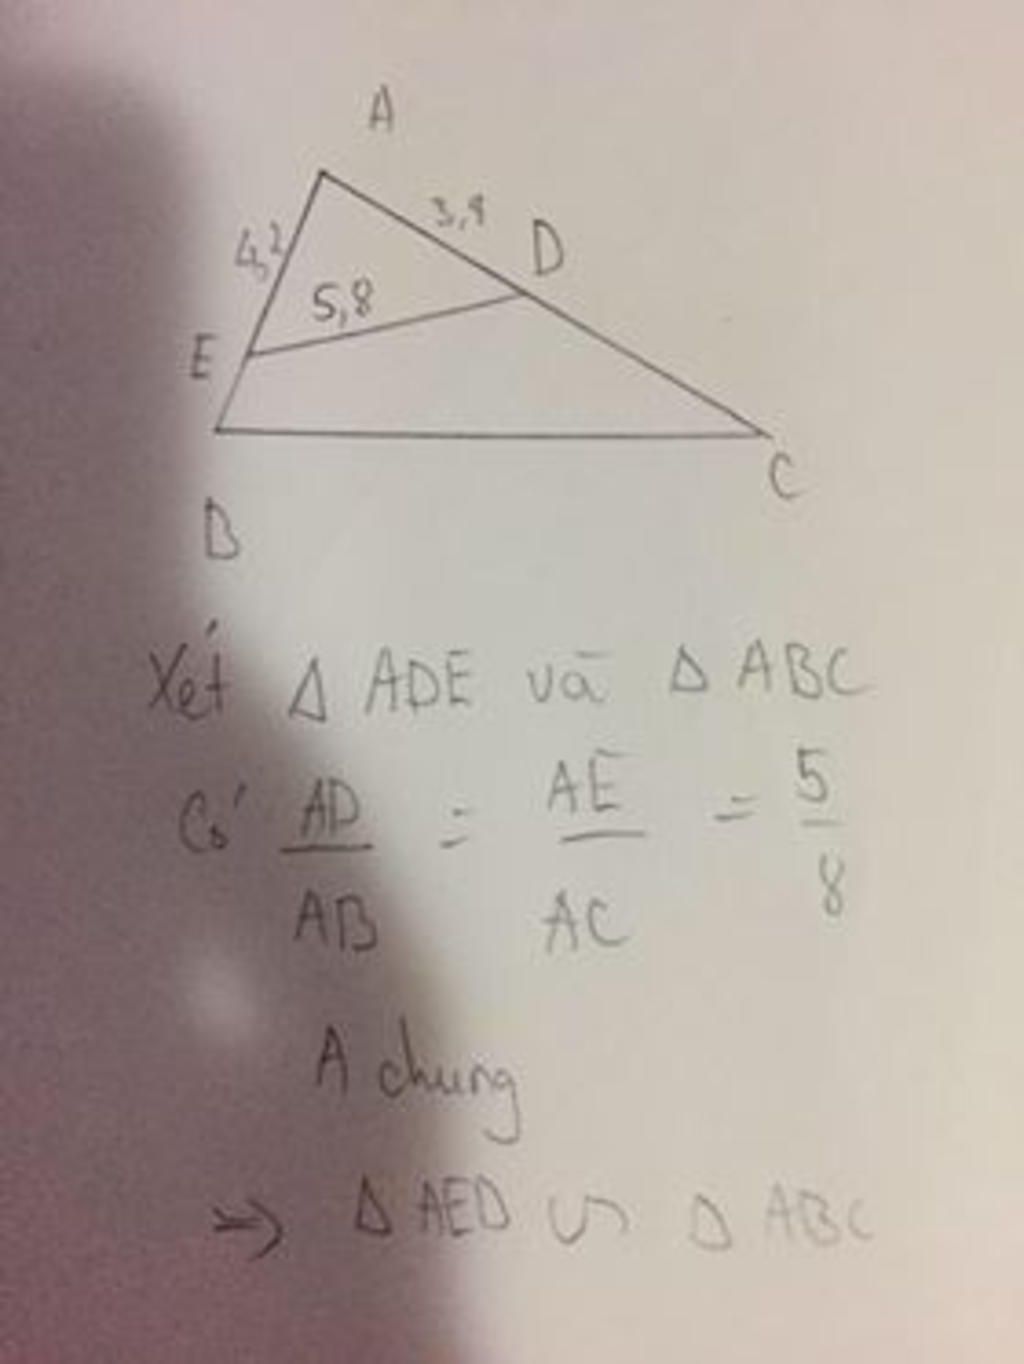 A
3,9
D
4,2
5,8
E
C
B
Xét Δ ADE và Δ ABC
Có AD/AB = AE/AC = 5/8
A chung
=> Δ AED ∽ Δ ABC